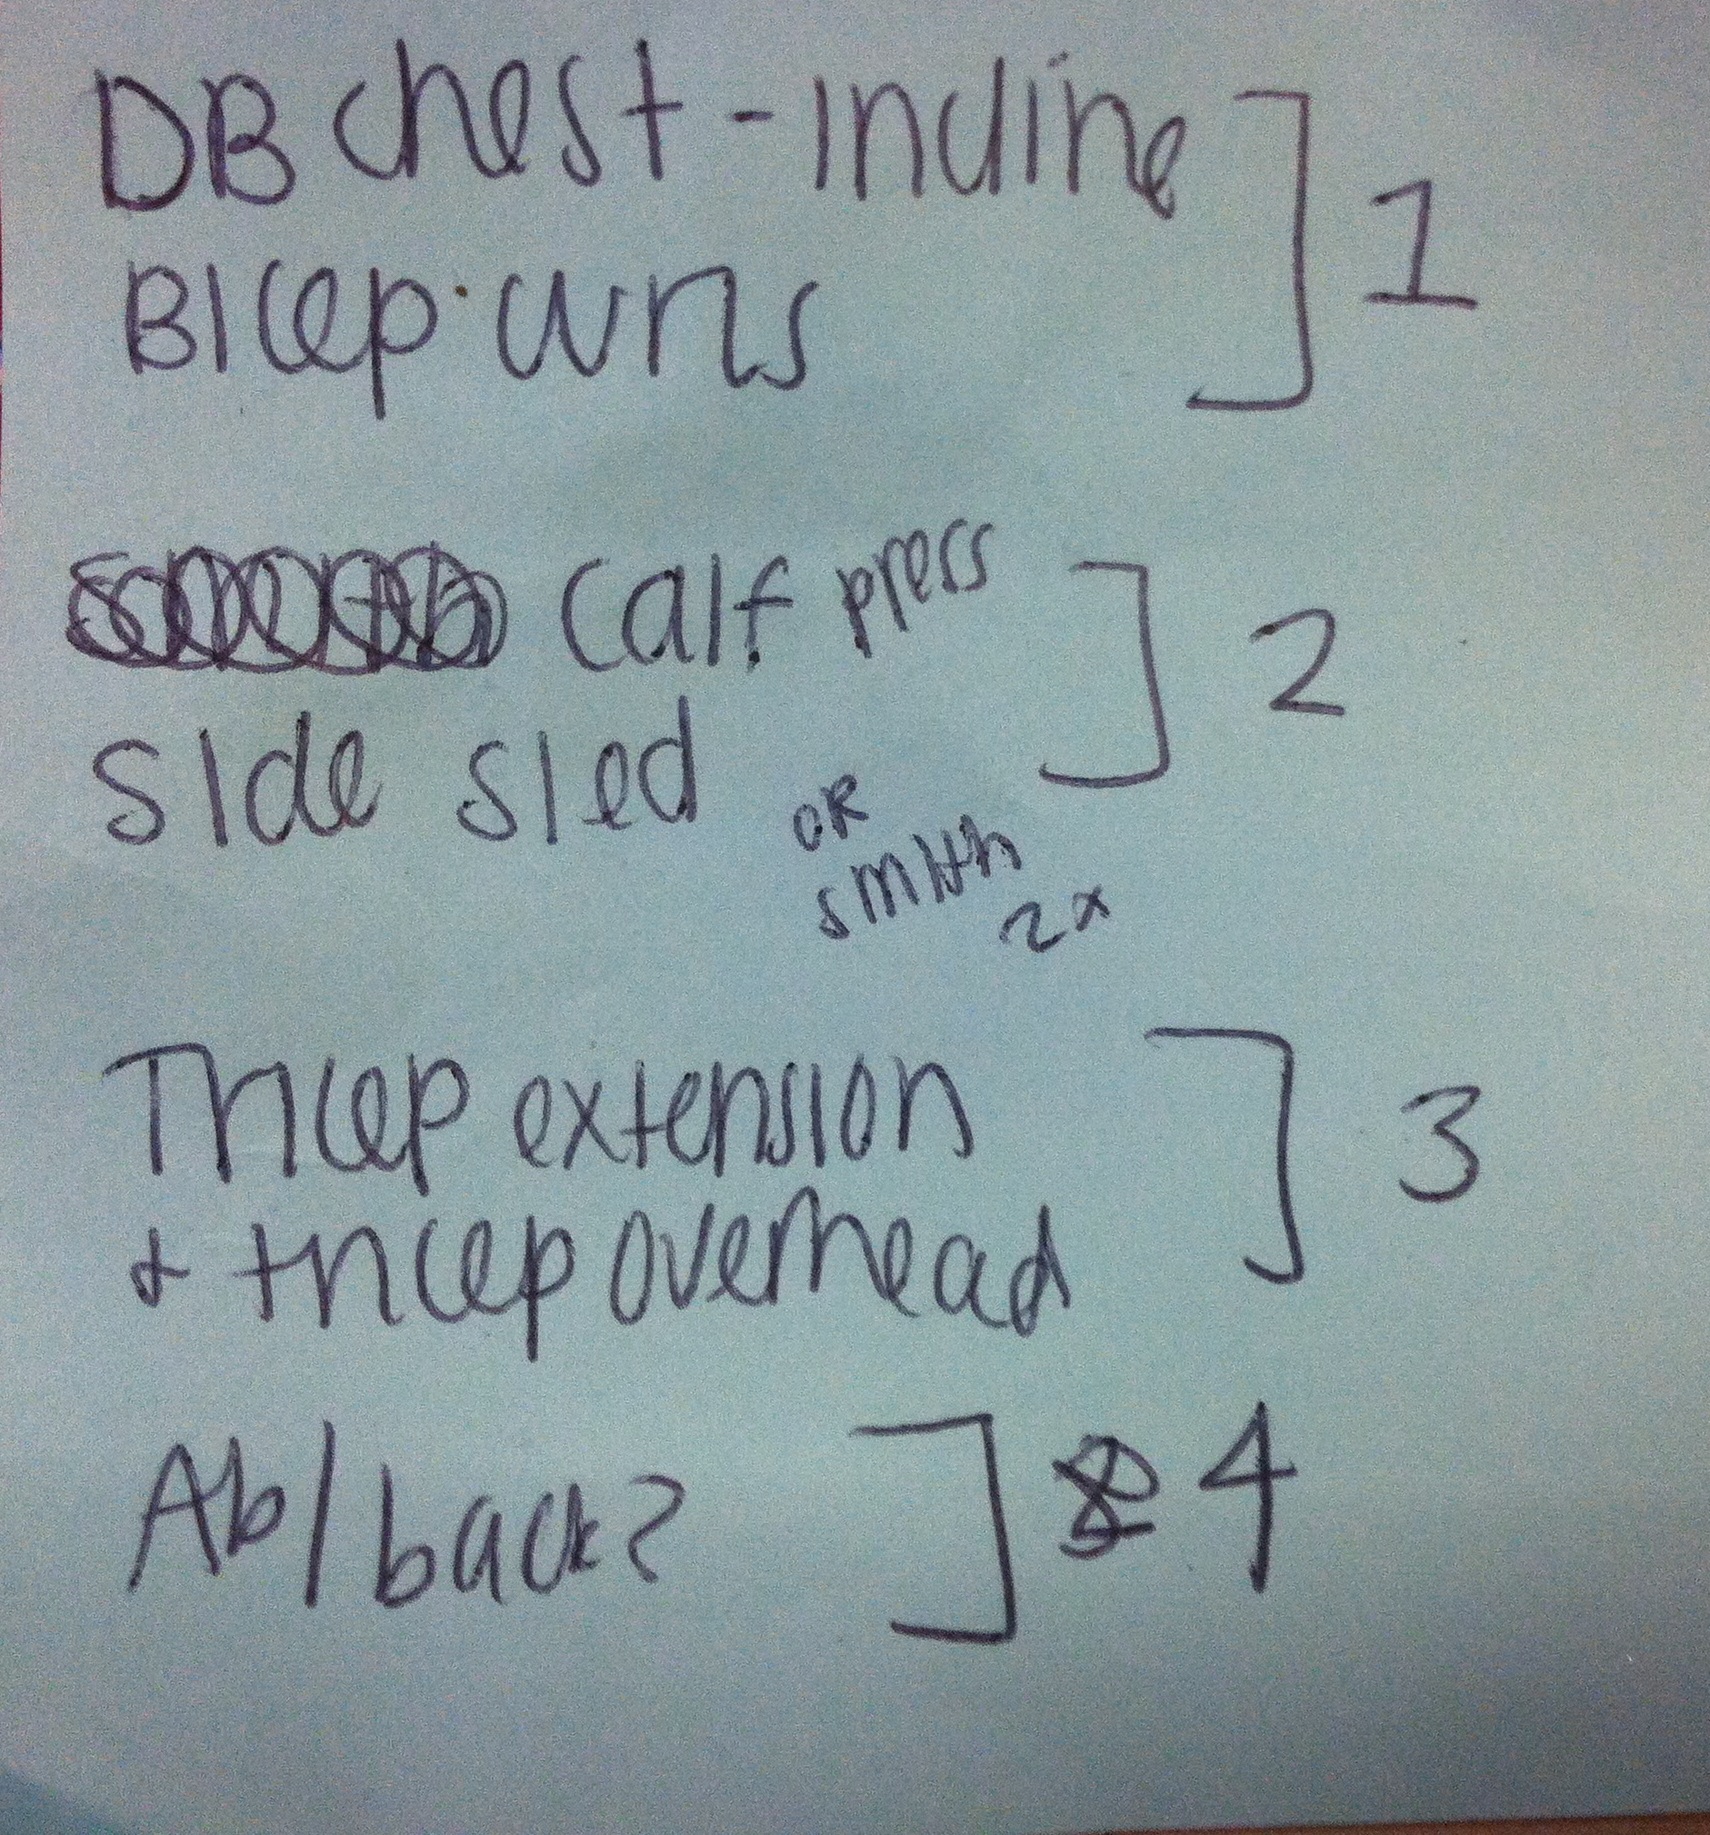 DB chest - incline ] 1
Bicep curls
calf press ] 2
side sled
OR
smith
2x
Tricep extension ] 3
+ tricep overhead
Ab/back? ] 4